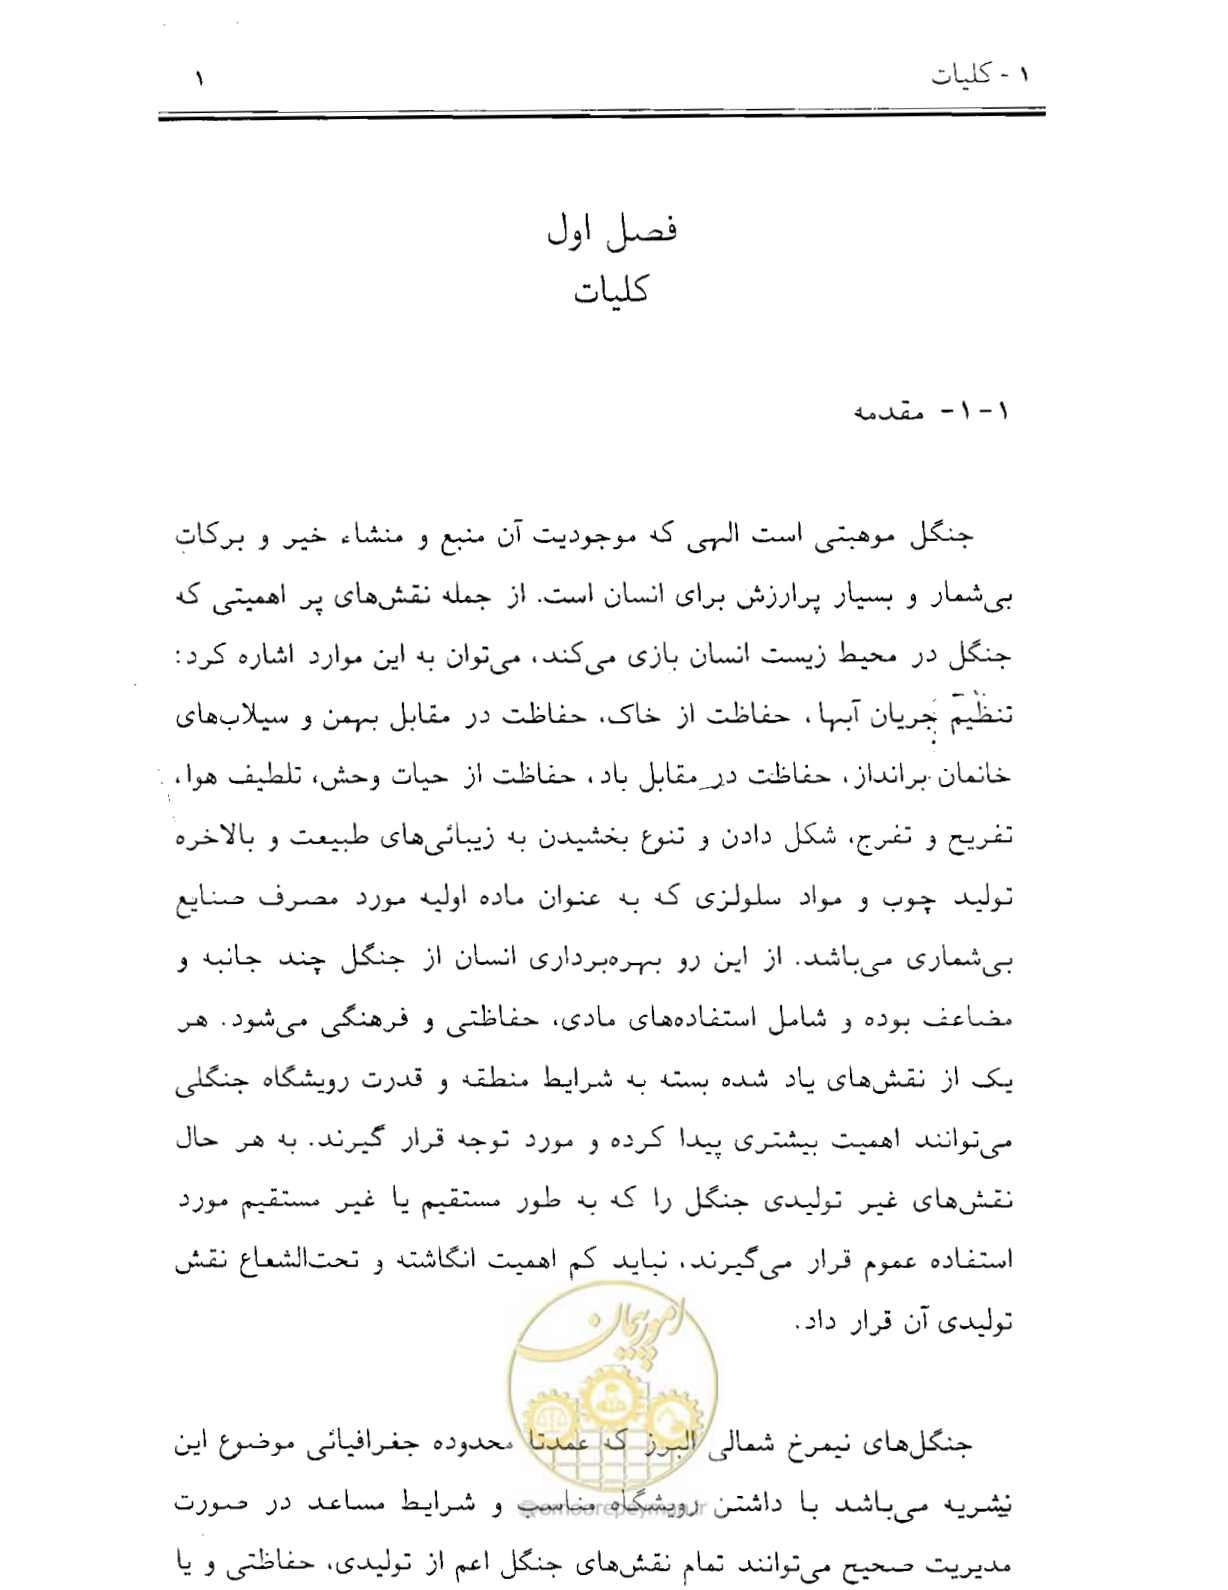 ۱ - کلیات
۱
فصل اول
کلیات
۱-۱- مقدمه
جنگل موهبتی است الهی که موجودیت آن منبع و منشاء خیر و برکات
بی‌شمار و بسیار پرارزش برای انسان است. از جمله نقش‌های پر اهمیتی که
جنگل در محیط زیست انسان بازی می‌کند، می‌توان به این موارد اشاره کرد:
تنظیم جریان آبها، حفاظت از خاک، حفاظت در مقابل بهمن و سیلاب‌های
خانمان برانداز، حفاظت در مقابل باد، حفاظت از حیات وحش، تلطیف هوا،
تفریح و تفرج، شکل دادن و تنوع بخشیدن به زیبائی‌های طبیعت و بالاخره
تولید چوب و مواد سلولزی که به عنوان ماده اولیه مورد مصرف صنایع
بی‌شماری می‌باشد. از این رو بهره‌برداری انسان از جنگل چند جانبه و
مضاعف بوده و شامل استفاده‌های مادی، حفاظتی و فرهنگی می‌شود. هر
یک از نقش‌های یاد شده بسته به شرایط منطقه و قدرت رویشگاه جنگلی
می‌توانند اهمیت بیشتری پیدا کرده و مورد توجه قرار گیرند. به هر حال
نقش‌های غیر تولیدی جنگل را که به طور مستقیم یا غیر مستقیم مورد
استفاده عموم قرار می‌گیرند، نباید کم اهمیت انگاشته و تحت‌الشعاع نقش
تولیدی آن قرار داد.
امور پیمان
جنگل‌های نیمرخ شمالی البرز که عمدتا محدوده جغرافیائی موضوع این
نشریه می‌باشد با داشتن رویشگاه مناسب و شرایط مساعد در صورت
@omoorepeyman.ir
مدیریت صحیح می‌توانند تمام نقش‌های جنگل اعم از تولیدی، حفاظتی و یا